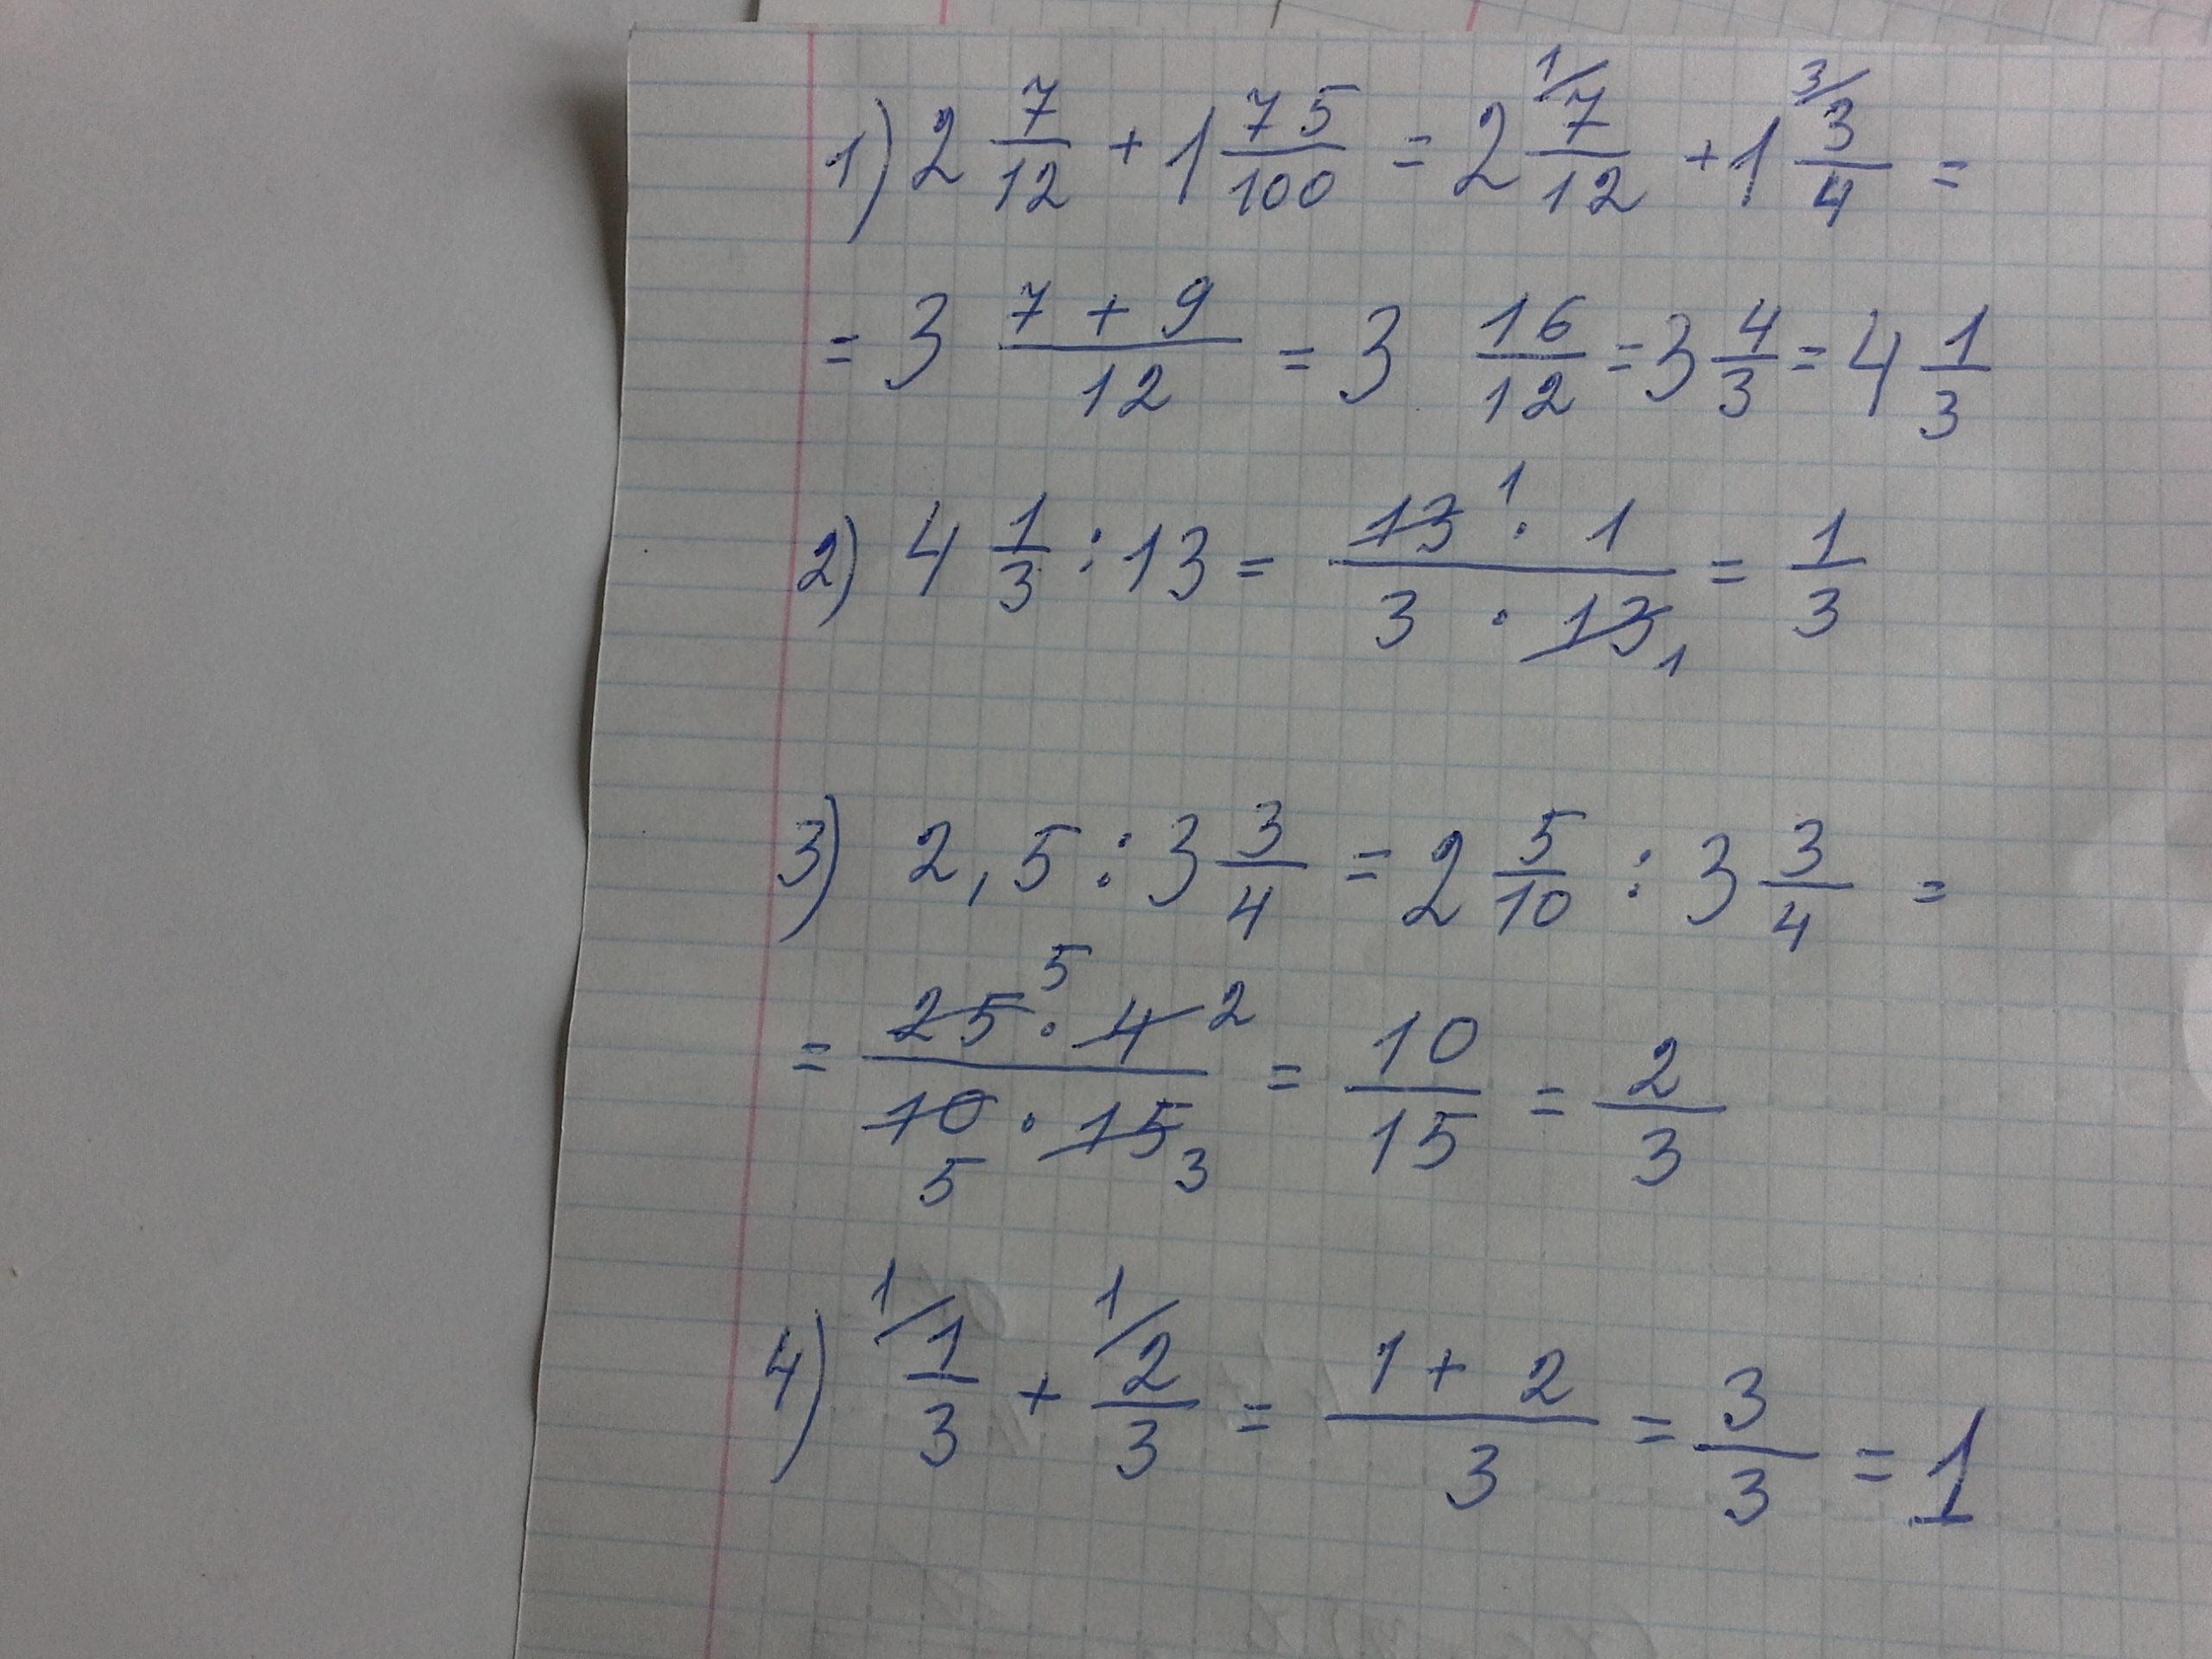 1) 2 7/12 + 1 75/100 = 2 ¹⁄7/12 + 1 ³⁄3/4 =
= 3 (7 + 9)/12 = 3 16/12 = 3 4/3 = 4 1/3
2) 4 1/3 : 13 = (13¹ · 1)/(3 · 13₁) = 1/3
3) 2,5 : 3 3/4 = 2 5/10 : 3 3/4 =
= (25⁵ · 4²)/(10₅ · 15₃) = 10/15 = 2/3
4) ¹⁄1/3 + ¹⁄2/3 = (1 + 2)/3 = 3/3 = 1